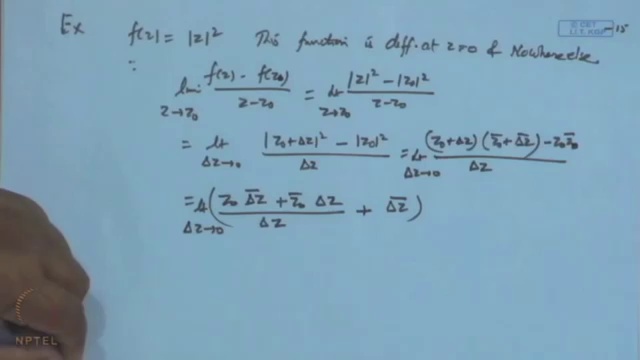 Ex f(z) = |z|² This function is diff. at z=0 & Nowhere else.
© CET
I.I.T. KGP
-15
∵ lim z→z₀ (f(z) - f(z₀))/(z - z₀) = lt z→z₀ (|z|² - |z₀|²)/(z - z₀)
= lt Δz→0 (|z₀+Δz|² - |z₀|²)/Δz = lt Δz→0 ((z₀+Δz)(z̄₀+Δ̅z̅) - z₀z̄₀)/Δz
= lt Δz→0 ((z₀ Δ̅z̅ + z̄₀ Δz)/Δz + Δ̅z̅)
NPTEL